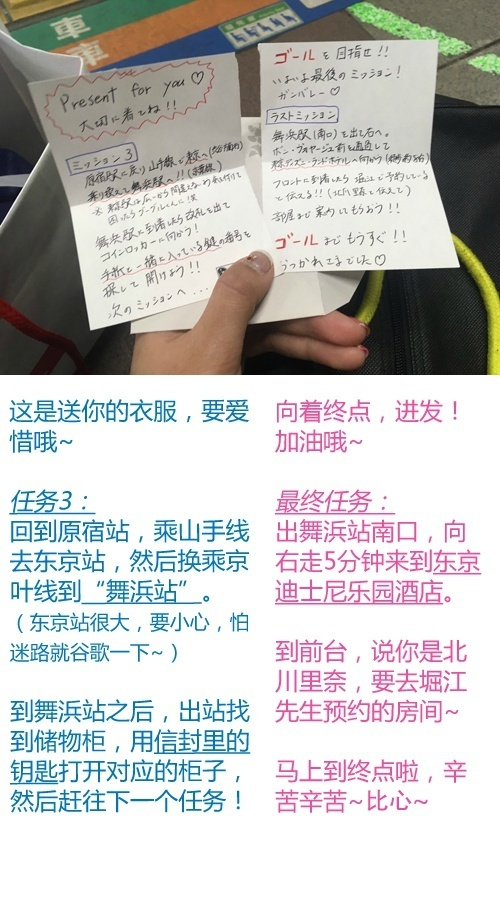 車
Present for you ♡
大切に着てね!!
ミッション3
原宿駅に戻り山手線で東京へ(渋谷方面)
乗り換えて舞浜駅へ!!(京葉線)
※東京駅は広〜から間違え 気を付けて
困ったらグーグルくんに!笑
舞浜駅に到着したら改札を出て
コインロッカーに向かう!
手紙と一緒に入っている鍵の番号を
探して開けよう!!
次のミッションへ...
ゴールを目指せ!!
いよいよ最後のミッション!
ガンバレー♡
ラストミッション
舞浜駅(南口)を出て右へ。
ボン・ヴォヤージュ前を通過して
東京ディズニーランドホテルへ向かう
フロントに到着したら 堀江で予約している
と伝える!!(北川 と伝えて)
部屋まで案内してもらおう!!
ゴールまでもうすぐ!!
おつかれさまでした♡
这是送你的衣服，要爱
惜哦~
任务3：
回到原宿站，乘山手线
去东京站，然后换乘京
叶线到“舞浜站”。
（东京站很大，要小心，怕
迷路就谷歌一下~）
到舞浜站之后，出站找
到储物柜，用信封里的
钥匙打开对应的柜子，
然后赶往下一个任务！
向着终点，进发！
加油哦~
最终任务：
出舞浜站南口，向
右走5分钟来到东京
迪士尼乐园酒店。
到前台，说你是北
川里奈，要去堀江
先生预约的房间~
马上到终点啦，辛
苦辛苦~比心~